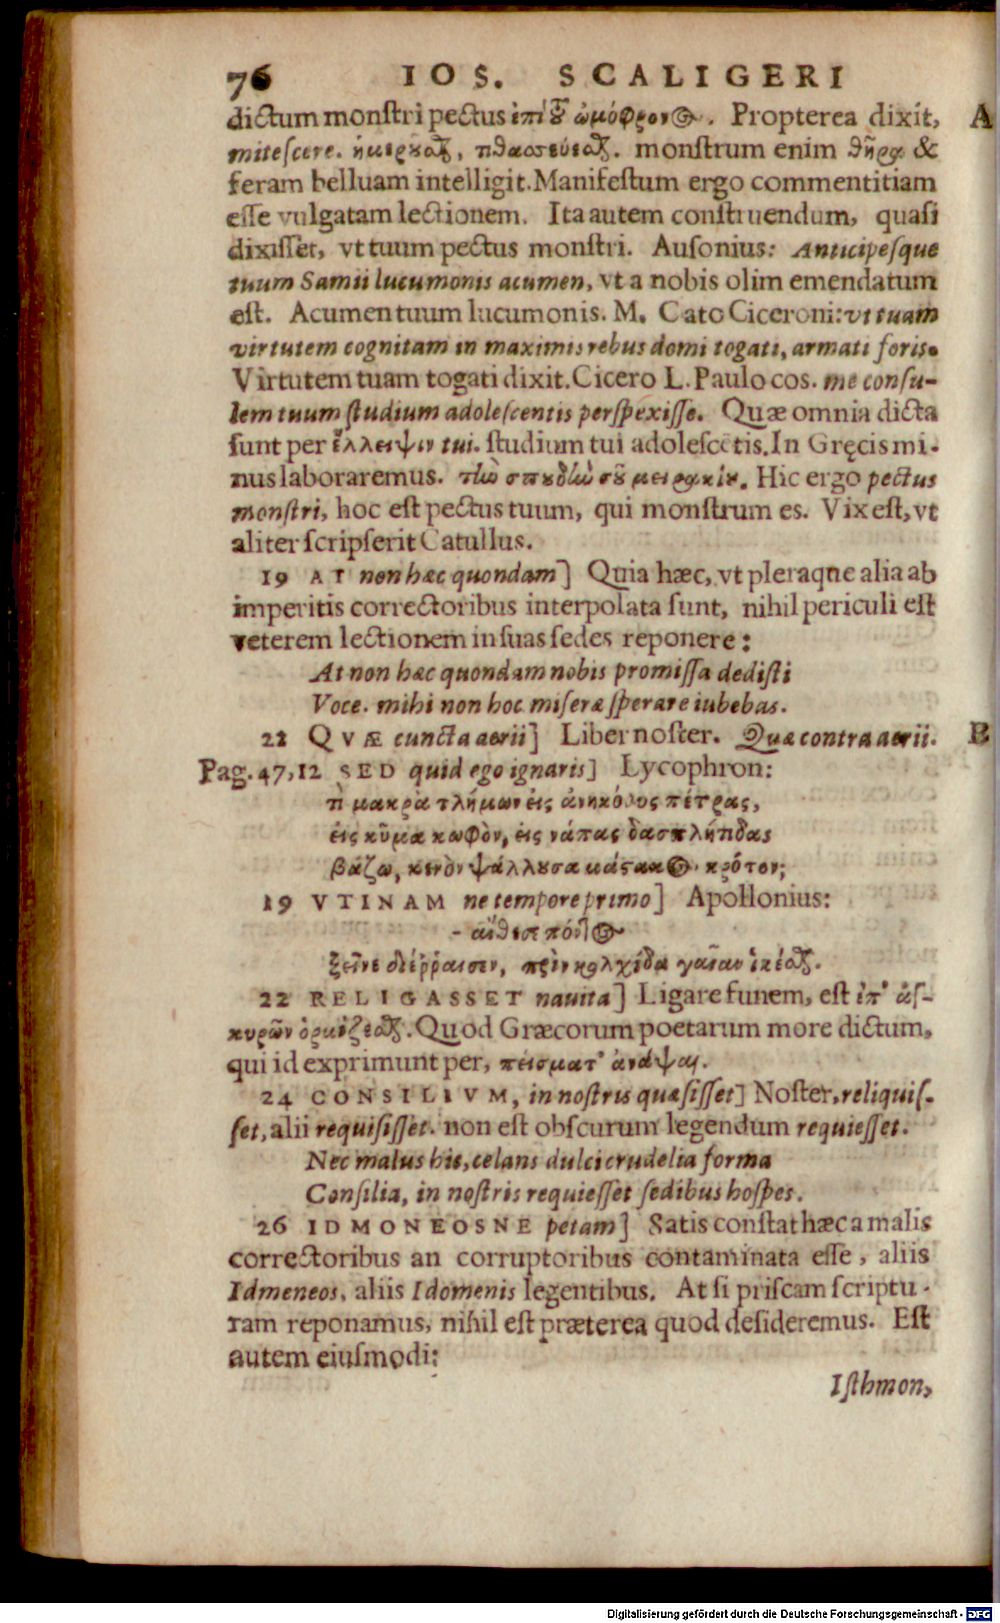 76 IOS. SCALIGERI
dictum monſtri pectus ἐπὶ τοῦ ὠμόφρονος. Propterea dixit, A
miteſcere. ἡμεροῦσθαι, τιθασσεύεσθαι. monſtrum enim θῆρα &
feram belluam intelligit. Manifeſtum ergo commentitiam
eſſe vulgatam lectionem. Ita autem conſtruendum, quaſi
dixiſſet, vt tuum pectus monſtri. Auſonius: Anticipeſque
tuum Samii lucumonis acumen, vt a nobis olim emendatum
eſt. Acumen tuum lucumonis. M. Cato Ciceroni: vt tuam
virtutem cognitam in maximis rebus domi togati, armati foris.
Virtutem tuam togati dixit. Cicero L. Paulo cos. me conſu-
lem tuum ſtudium adoleſcentis perſpexiſſe. Quæ omnia dicta
ſunt per ἔλλειψιν tui. ſtudium tui adoleſcētis. In Gręcis mi-
nus laboraremus. τὴν σπουδὴν σοῦ μειρακίου. Hic ergo pectus
monſtri, hoc eſt pectus tuum, qui monſtrum es. Vix eſt, vt
aliter ſcripſerit Catullus.
19 AT non hæc quondam] Quia hæc, vt pleraque alia ab
imperitis correctoribus interpolata ſunt, nihil periculi eſt
veterem lectionem in ſuas ſedes reponere:
At non hæc quondam nobis promiſſa dediſti
Voce. mihi non hoc miſeræ ſperare iubebas.
22 QVÆ cuncta aerii] Liber noſter. Quæ contra aerii. B
Pag. 47, 12 SED quid ego ignaris] Lycophron:
τί μακρὰ τλήμων εἰς ἀνηκόους πέτρας,
εἰς κῦμα κωφὸν, εἰς νάπας δασπλήτιδας
βάζω, κενὸν ψάλλουσα μάστακος κρότον;
19 VTINAM ne tempore primo] Apollonius:
- αἴθε σε πόντος
ξεῖνε διέρραισεν, πρὶν κολχίδα γαῖαν ἱκέσθαι.
22 RELIGASSET nauita] Ligare funem, eſt ἐπ' ἀγ-
κυρῶν ὁρμίζεσθαι. Quod Græcorum poetarum more dictum,
qui id exprimunt per, πείσματ' ἀνάψαι.
24 CONSILIVM, in noſtris quæſiſſet] Noſter, reliquiſ-
ſet, alii requiſiſſet. non eſt obſcurum legendum requieſſet.
Nec malus hic, celans dulci crudelia forma
Conſilia, in noſtris requieſſet ſedibus hoſpes.
26 IDMONEOSNE petam] Satis conſtat hæc a malis
correctoribus an corruptoribus contaminata eſſe, aliis
Idmeneos, aliis Idomenis legentibus. At ſi priſcam ſcriptu-
ram reponamus, nihil eſt præterea quod deſideremus. Eſt
autem eiuſmodi:
Iſthmon,
Digitalisierung gefördert durch die Deutsche Forschungsgemeinschaft - DFG